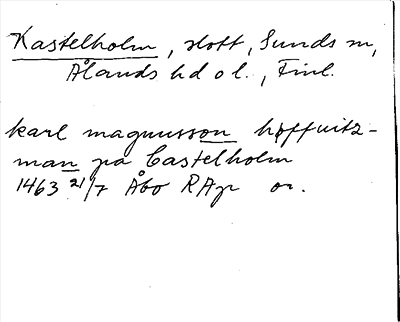 Kastelholm, slott, Sunds sn,
Ålands hd o l., Finl.
karl magnusson höffuitz-
man pa Castelholm
1463 21/7 Åbo RAp or.